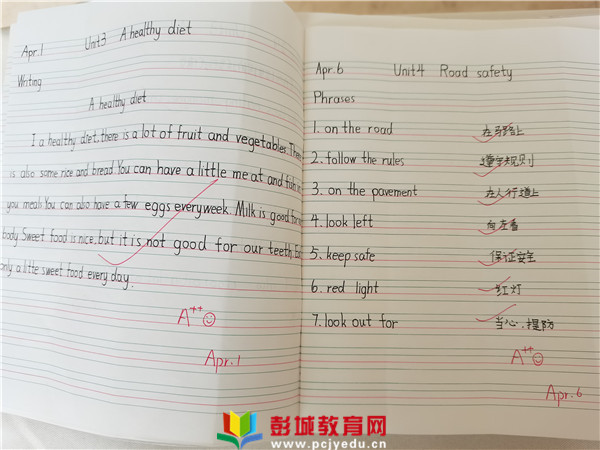 Apr.1 Unit3 A healthy diet
Writing
A healthy diet
I a healthy diet, there is a lot of fruit and vegetables. There
is also some rice and bread. You can have a little meat and fish in
you meal. You can also have a few eggs every week. Milk is good for
body. Sweet food is nice, but it is not good for our teeth.
only a litte sweet food every day.
A++
Apr.1
Apr.6 Unit4 Road safety
Phrases
1. on the road 在马路上
2. follow the rules 遵守规则
3. on the pavement 在人行道上
4. look left 向左看
5. keep safe 保证安全
6. red light 红灯
7. look out for 当心,提防
A++
Apr.6
彭城教育网
www.pcjyedu.cn